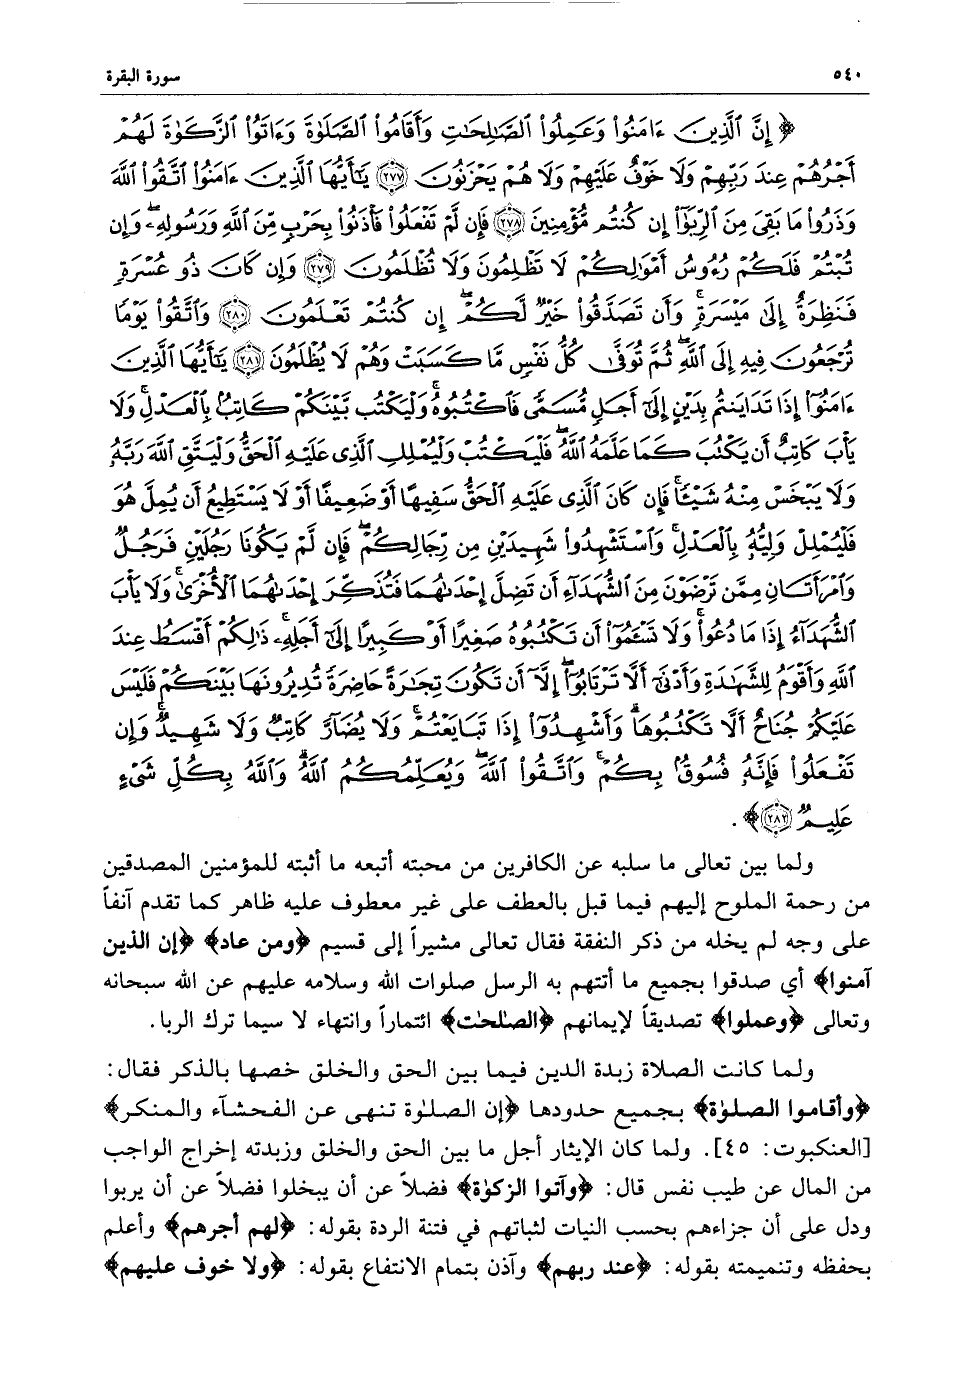 ٥٤٠ سورة البقرة
﴿ إِنَّ ٱلَّذِينَ ءَامَنُوا۟ وَعَمِلُوا۟ ٱلصَّٰلِحَٰتِ وَأَقَامُوا۟ ٱلصَّلَوٰةَ وَءَاتَوُا۟ ٱلزَّكَوٰةَ لَهُمْ
أَجْرُهُمْ عِندَ رَبِّهِمْ وَلَا خَوْفٌ عَلَيْهِمْ وَلَا هُمْ يَحْزَنُونَ ﴿٢٧٧﴾ يَٰٓأَيُّهَا ٱلَّذِينَ ءَامَنُوا۟ ٱتَّقُوا۟ ٱللَّهَ
وَذَرُوا۟ مَا بَقِىَ مِنَ ٱلرِّبَوٰٓا۟ إِن كُنتُم مُّؤْمِنِينَ ﴿٢٧٨﴾ فَإِن لَّمْ تَفْعَلُوا۟ فَأْذَنُوا۟ بِحَرْبٍ مِّنَ ٱللَّهِ وَرَسُولِهِۦ ۖ وَإِن
تُبْتُمْ فَلَكُمْ رُءُوسُ أَمْوَٰلِكُمْ لَا تَظْلِمُونَ وَلَا تُظْلَمُونَ ﴿٢٧٩﴾ وَإِن كَانَ ذُو عُسْرَةٍ
فَنَظِرَةٌ إِلَىٰ مَيْسَرَةٍ ۚ وَأَن تَصَدَّقُوا۟ خَيْرٌ لَّكُمْ ۖ إِن كُنتُمْ تَعْلَمُونَ ﴿٢٨٠﴾ وَٱتَّقُوا۟ يَوْمًا
تُرْجَعُونَ فِيهِ إِلَى ٱللَّهِ ۖ ثُمَّ تُوَفَّىٰ كُلُّ نَفْسٍ مَّا كَسَبَتْ وَهُمْ لَا يُظْلَمُونَ ﴿٢٨١﴾ يَٰٓأَيُّهَا ٱلَّذِينَ
ءَامَنُوٓا۟ إِذَا تَدَايَنتُم بِدَيْنٍ إِلَىٰٓ أَجَلٍ مُّسَمًّى فَٱكْتُبُوهُ ۚ وَلْيَكْتُب بَّيْنَكُمْ كَاتِبٌۢ بِٱلْعَدْلِ ۚ وَلَا
يَأْبَ كَاتِبٌ أَن يَكْتُبَ كَمَا عَلَّمَهُ ٱللَّهُ ۚ فَلْيَكْتُبْ وَلْيُمْلِلِ ٱلَّذِى عَلَيْهِ ٱلْحَقُّ وَلْيَتَّقِ ٱللَّهَ رَبَّهُۥ
وَلَا يَبْخَسْ مِنْهُ شَيْـًٔا ۚ فَإِن كَانَ ٱلَّذِى عَلَيْهِ ٱلْحَقُّ سَفِيهًا أَوْ ضَعِيفًا أَوْ لَا يَسْتَطِيعُ أَن يُمِلَّ هُوَ
فَلْيُمْلِلْ وَلِيُّهُۥ بِٱلْعَدْلِ ۚ وَٱسْتَشْهِدُوا۟ شَهِيدَيْنِ مِن رِّجَالِكُمْ ۖ فَإِن لَّمْ يَكُونَا رَجُلَيْنِ فَرَجُلٌ
وَٱمْرَأَتَانِ مِمَّن تَرْضَوْنَ مِنَ ٱلشُّهَدَآءِ أَن تَضِلَّ إِحْدَىٰهُمَا فَتُذَكِّرَ إِحْدَىٰهُمَا ٱلْأُخْرَىٰ ۚ وَلَا يَأْبَ
ٱلشُّهَدَآءُ إِذَا مَا دُعُوا۟ ۚ وَلَا تَسْـَٔمُوٓا۟ أَن تَكْتُبُوهُ صَغِيرًا أَوْ كَبِيرًا إِلَىٰٓ أَجَلِهِۦ ۚ ذَٰلِكُمْ أَقْسَطُ عِندَ
ٱللَّهِ وَأَقْوَمُ لِلشَّهَٰدَةِ وَأَدْنَىٰٓ أَلَّا تَرْتَابُوٓا۟ ۖ إِلَّآ أَن تَكُونَ تِجَٰرَةً حَاضِرَةً تُدِيرُونَهَا بَيْنَكُمْ فَلَيْسَ
عَلَيْكُمْ جُنَاحٌ أَلَّا تَكْتُبُوهَا ۗ وَأَشْهِدُوٓا۟ إِذَا تَبَايَعْتُمْ ۚ وَلَا يُضَآرَّ كَاتِبٌ وَلَا شَهِيدٌ ۚ وَإِن
تَفْعَلُوا۟ فَإِنَّهُۥ فُسُوقٌۢ بِكُمْ ۗ وَٱتَّقُوا۟ ٱللَّهَ ۖ وَيُعَلِّمُكُمُ ٱللَّهُ ۗ وَٱللَّهُ بِكُلِّ شَىْءٍ
عَلِيمٌ ﴿٢٨٢﴾ ﴾ .
ولما بين تعالى ما سلبه عن الكافرين من محبته أتبعه ما أثبته للمؤمنين المصدقين
من رحمة الملوح إليهم فيما قبل بالعطف على غير معطوف عليه ظاهر كما تقدم آنفاً
على وجه لم يخله من ذكر النفقة فقال تعالى مشيراً إلى قسيم ﴿ومن عاد﴾ ﴿إن الذين
آمنوا﴾ أي صدقوا بجميع ما أتتهم به الرسل صلوات الله وسلامه عليهم عن الله سبحانه
وتعالى ﴿وعملوا﴾ تصديقاً لإيمانهم ﴿الصلحٰت﴾ ائتماراً وانتهاء لا سيما ترك الربا.
ولما كانت الصلاة زبدة الدين فيما بين الحق والخلق خصها بالذكر فقال:
﴿وأقاموا الصلوٰة﴾ بجميع حدودها ﴿إن الصلوٰة تنهى عن الفحشآء والمنكر﴾
[العنكبوت: ٤٥]. ولما كان الإيثار أجل ما بين الحق والخلق وزبدته إخراج الواجب
من المال عن طيب نفس قال: ﴿وآتوا الزكوٰة﴾ فضلاً عن أن يبخلوا فضلاً عن أن يربوا
ودل على أن جزاءهم بحسب النيات لثباتهم في فتنة الردة بقوله: ﴿لهم أجرهم﴾ وأعلم
بحفظه وتنميمته بقوله: ﴿عند ربهم﴾ وآذن بتمام الانتفاع بقوله: ﴿ولا خوف عليهم﴾